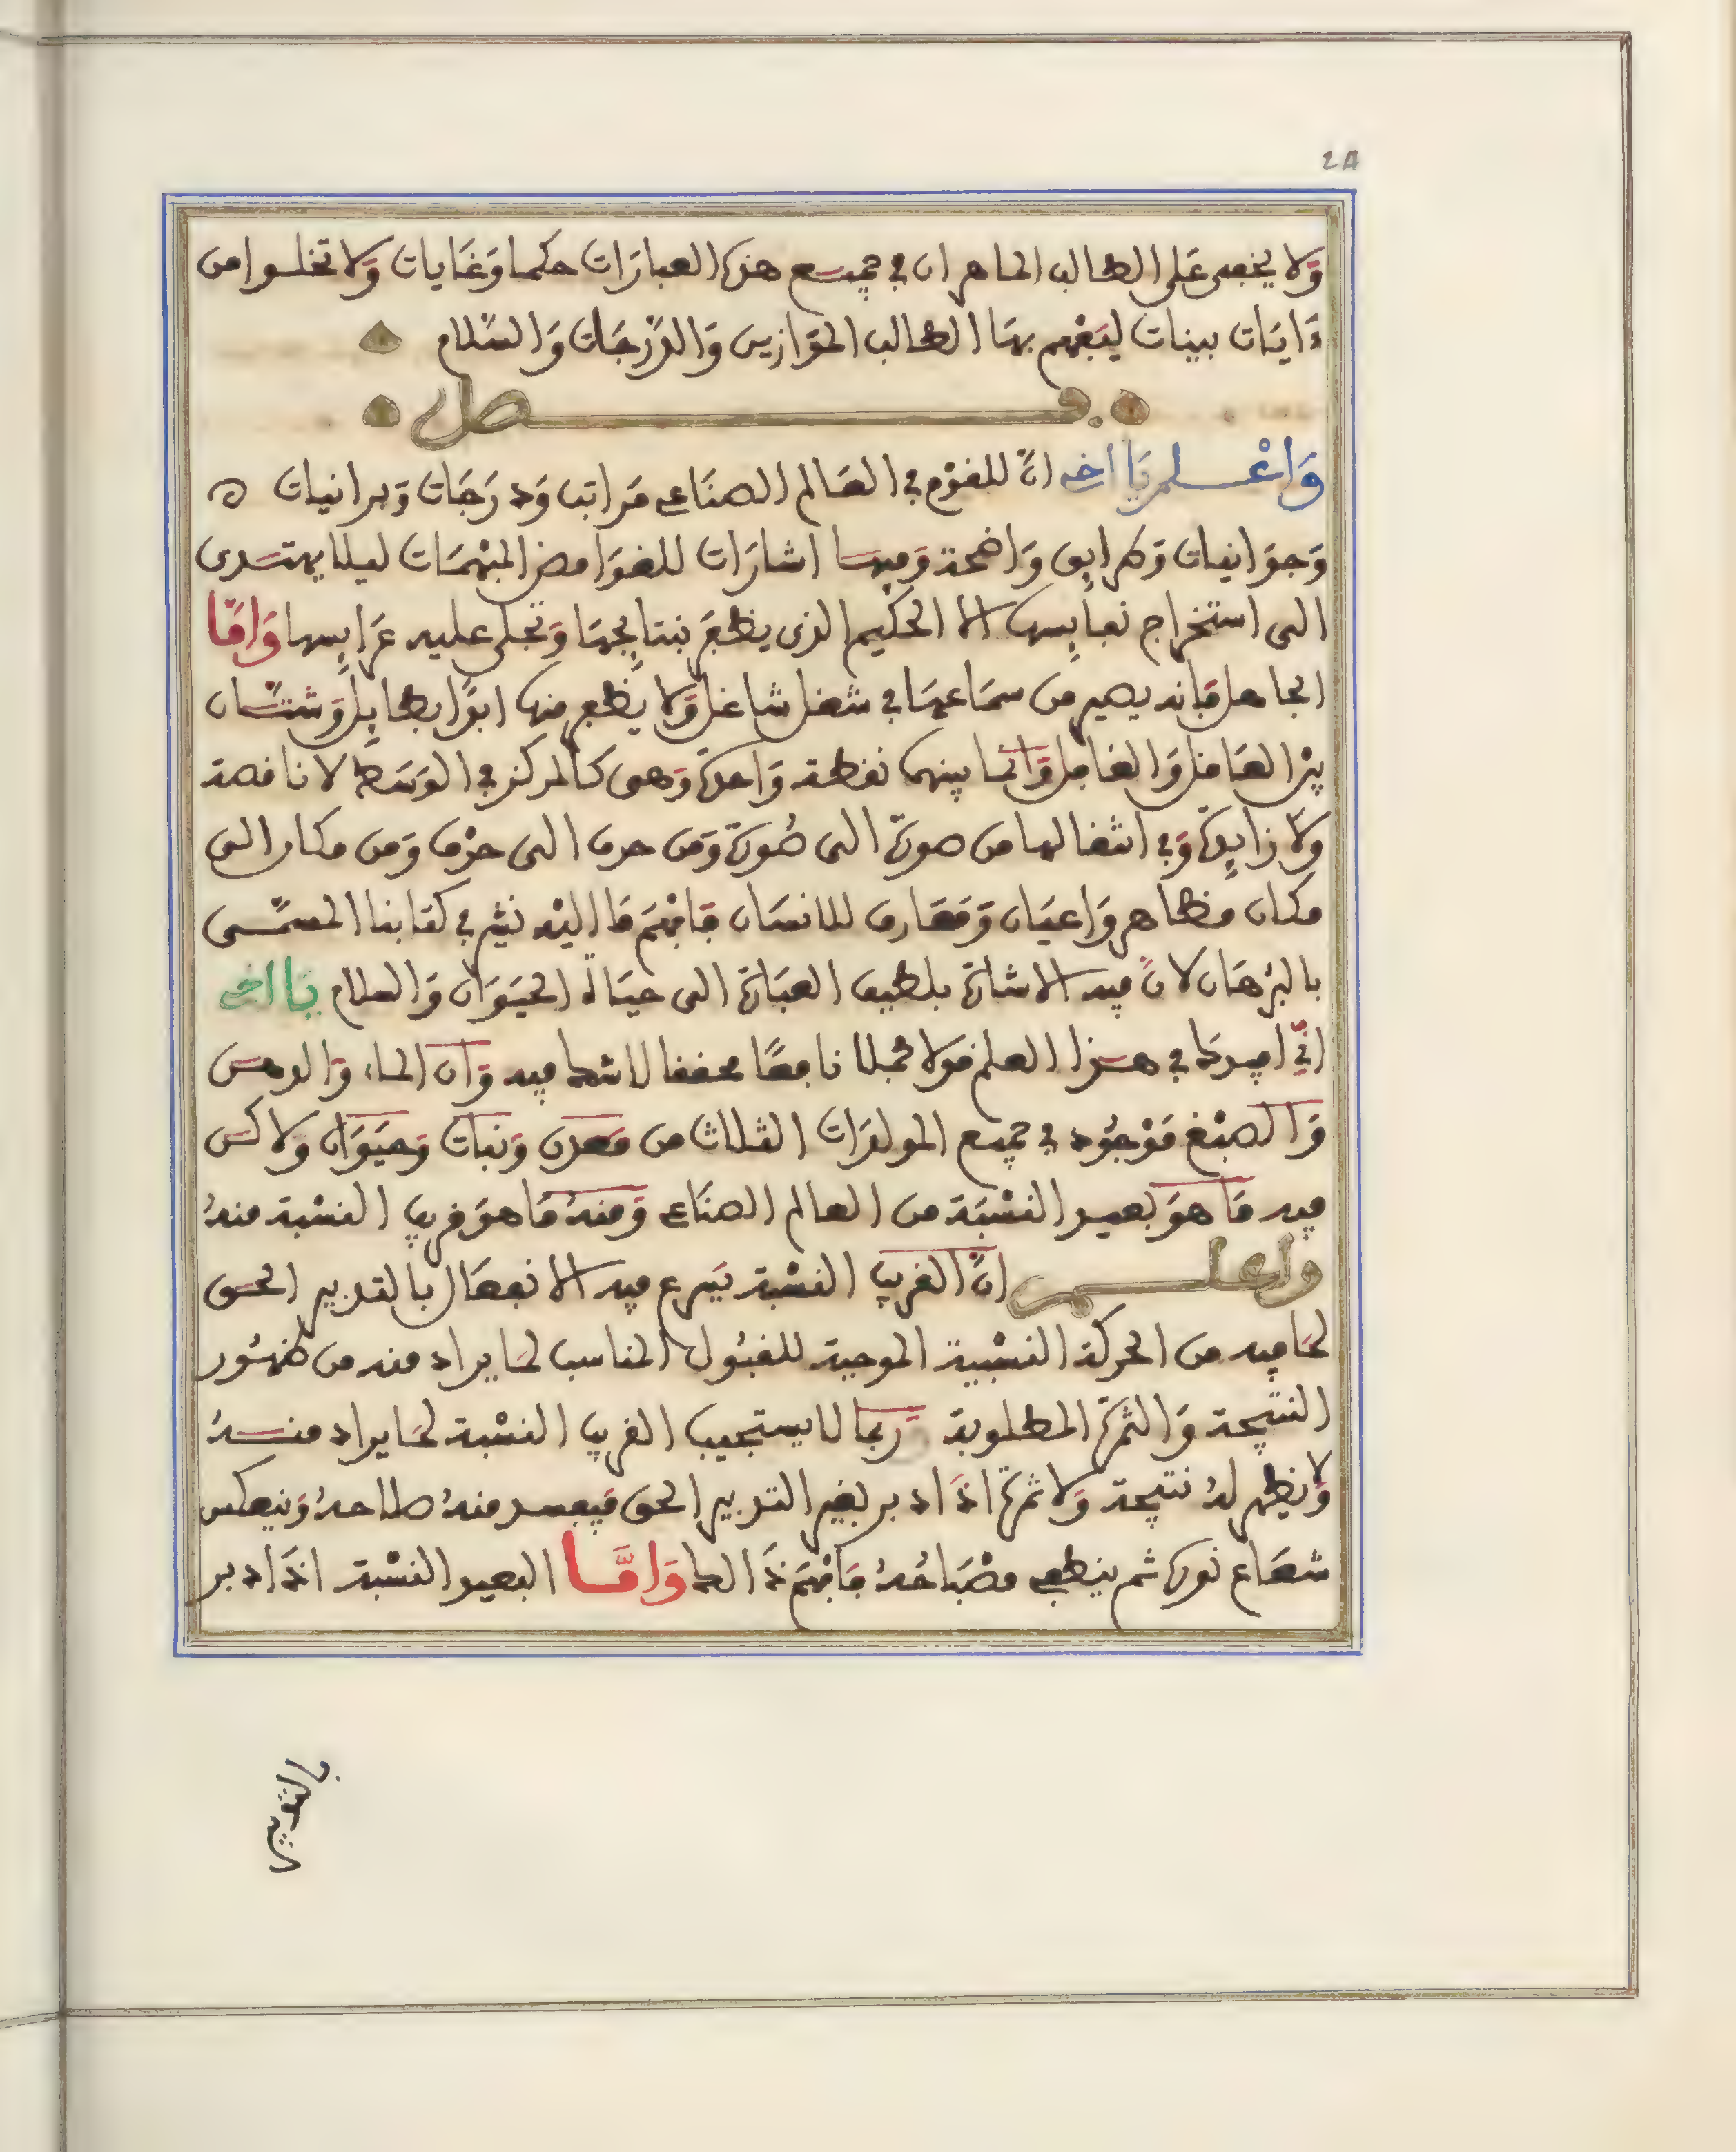 24
وَلا يخفى عَلى الطالب الماهر ان في جميع هذه العبارَات حكما وَغَايات وَلا تخلوا من
ءَايَات بينات ليَفْهم بهَا الطالب الموَازين وَالدَّرَجَات وَالسَّلام
فصل
وَاعْلم يَا اخي انَّ للقوْم في العَالم الصنَاعي مَراتب وَدرَجَات وَبرانيات
وَجوَانيات وَطرايق وَاضحة وَفيها اشارَات للغوَامض المبْهمَات ليلا يهتدى
الى استخراج نفايسها الا الحكيم الذى يظفَر بنتايجهَا وَتجلى عليه عرَايسها وَامَّا
الجاهل فَانه يصير من سمَاعهَا في شغل شاغل وَلا يظفر منها ابدًا بطايل وَشتَّان
بيْن العَاقل وَالغافل وَانما بينهما نقطة وَاحدة وَهى كالمركز في الوَسَط لا ناقصة
ولا زايدة وَفي انتقالها من صورة الى صُورة وَمن حرف الى حرْف وَمن مكان الى
مكان مظاهر وَاعيَان وَمَعَارف للانسَان فَافهَم مَا اليْه نشير في كتابنا المسمَّى
بالبُرهَان لانَّ فيه الاشارَة بلطيف العبَارَة الى حيَاة الحيَوَان وَالسلام يَا اخي
انّي افيدكَ في هذا العلم قولا مجملا نافعًا محققا لا شك فيه وَان الماء وَالدهن
وَالصبْغ مَوْجُود في جميع المولدَات الثلاث من مَعدن وَنبات وَحيَوَان وَلاكن
فيه مَا هوَ بعيد النسْبَة من العالم الصنَاعي وَمنهُ مَا هوَ قريب النسْبة منهُ
واعلم انَّ القريب النسْبة يَسرع فيه الانفعَال بالتدبير الحَق
لمَا فيه من الحركة النسْبية الموجبة للقبُول المناسب لمَا يراد منه من ظهُور
النتيجة وَالثمرَة المطلوبة رَبما لا يستجيب القريب النسْبة لمَا يراد منهُ
وَلا يظهر لهُ نتيجة وَلا ثمرَة اذَا دبر بغير التدبير الحق فَيفسد منهُ صلاحهُ وَينعكس
شعَاع نورَه ثم ينطفى مصْبَاحُهُ فَافهَم ذَالك وَامَّا البعيد النسْبة اذَا دبر
بالتدبير